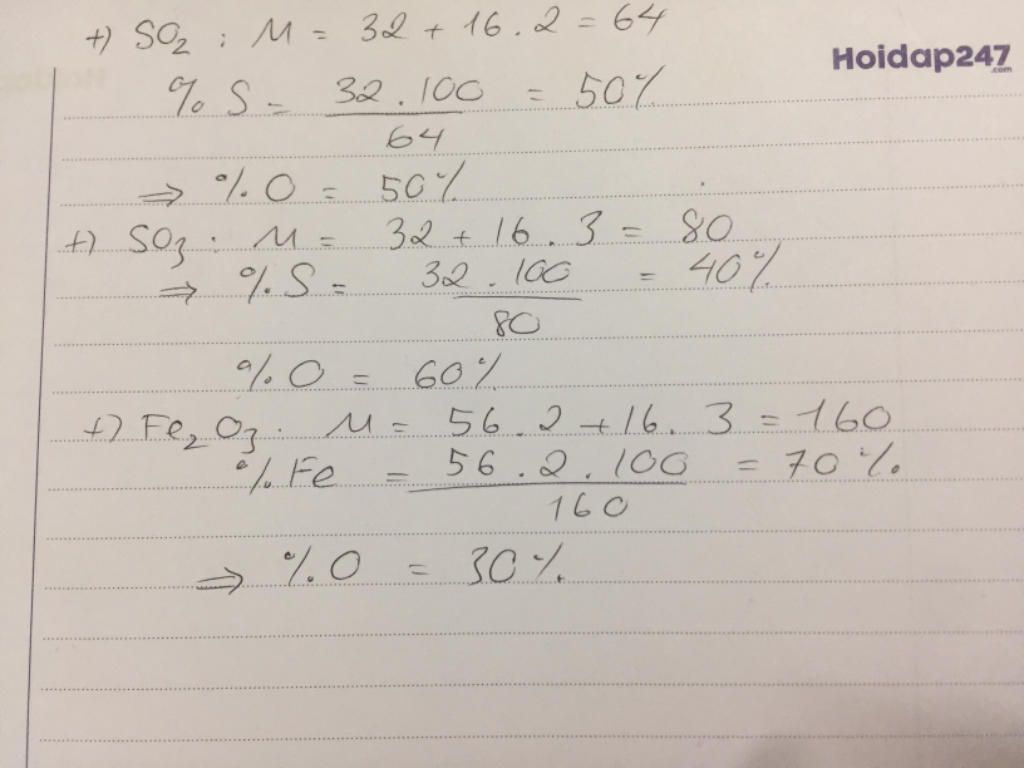 +) SO2 : M = 32 + 16 . 2 = 64
Hoidap247
.com
% S = 32 . 100 / 64 = 50%
⇒ % O = 50%
+) SO3 : M = 32 + 16 . 3 = 80
⇒ % S = 32 . 100 / 80 = 40%
% O = 60%
+) Fe2O3 : M = 56 . 2 + 16 . 3 = 160
% Fe = 56 . 2 . 100 / 160 = 70%.
⇒ % O = 30%.